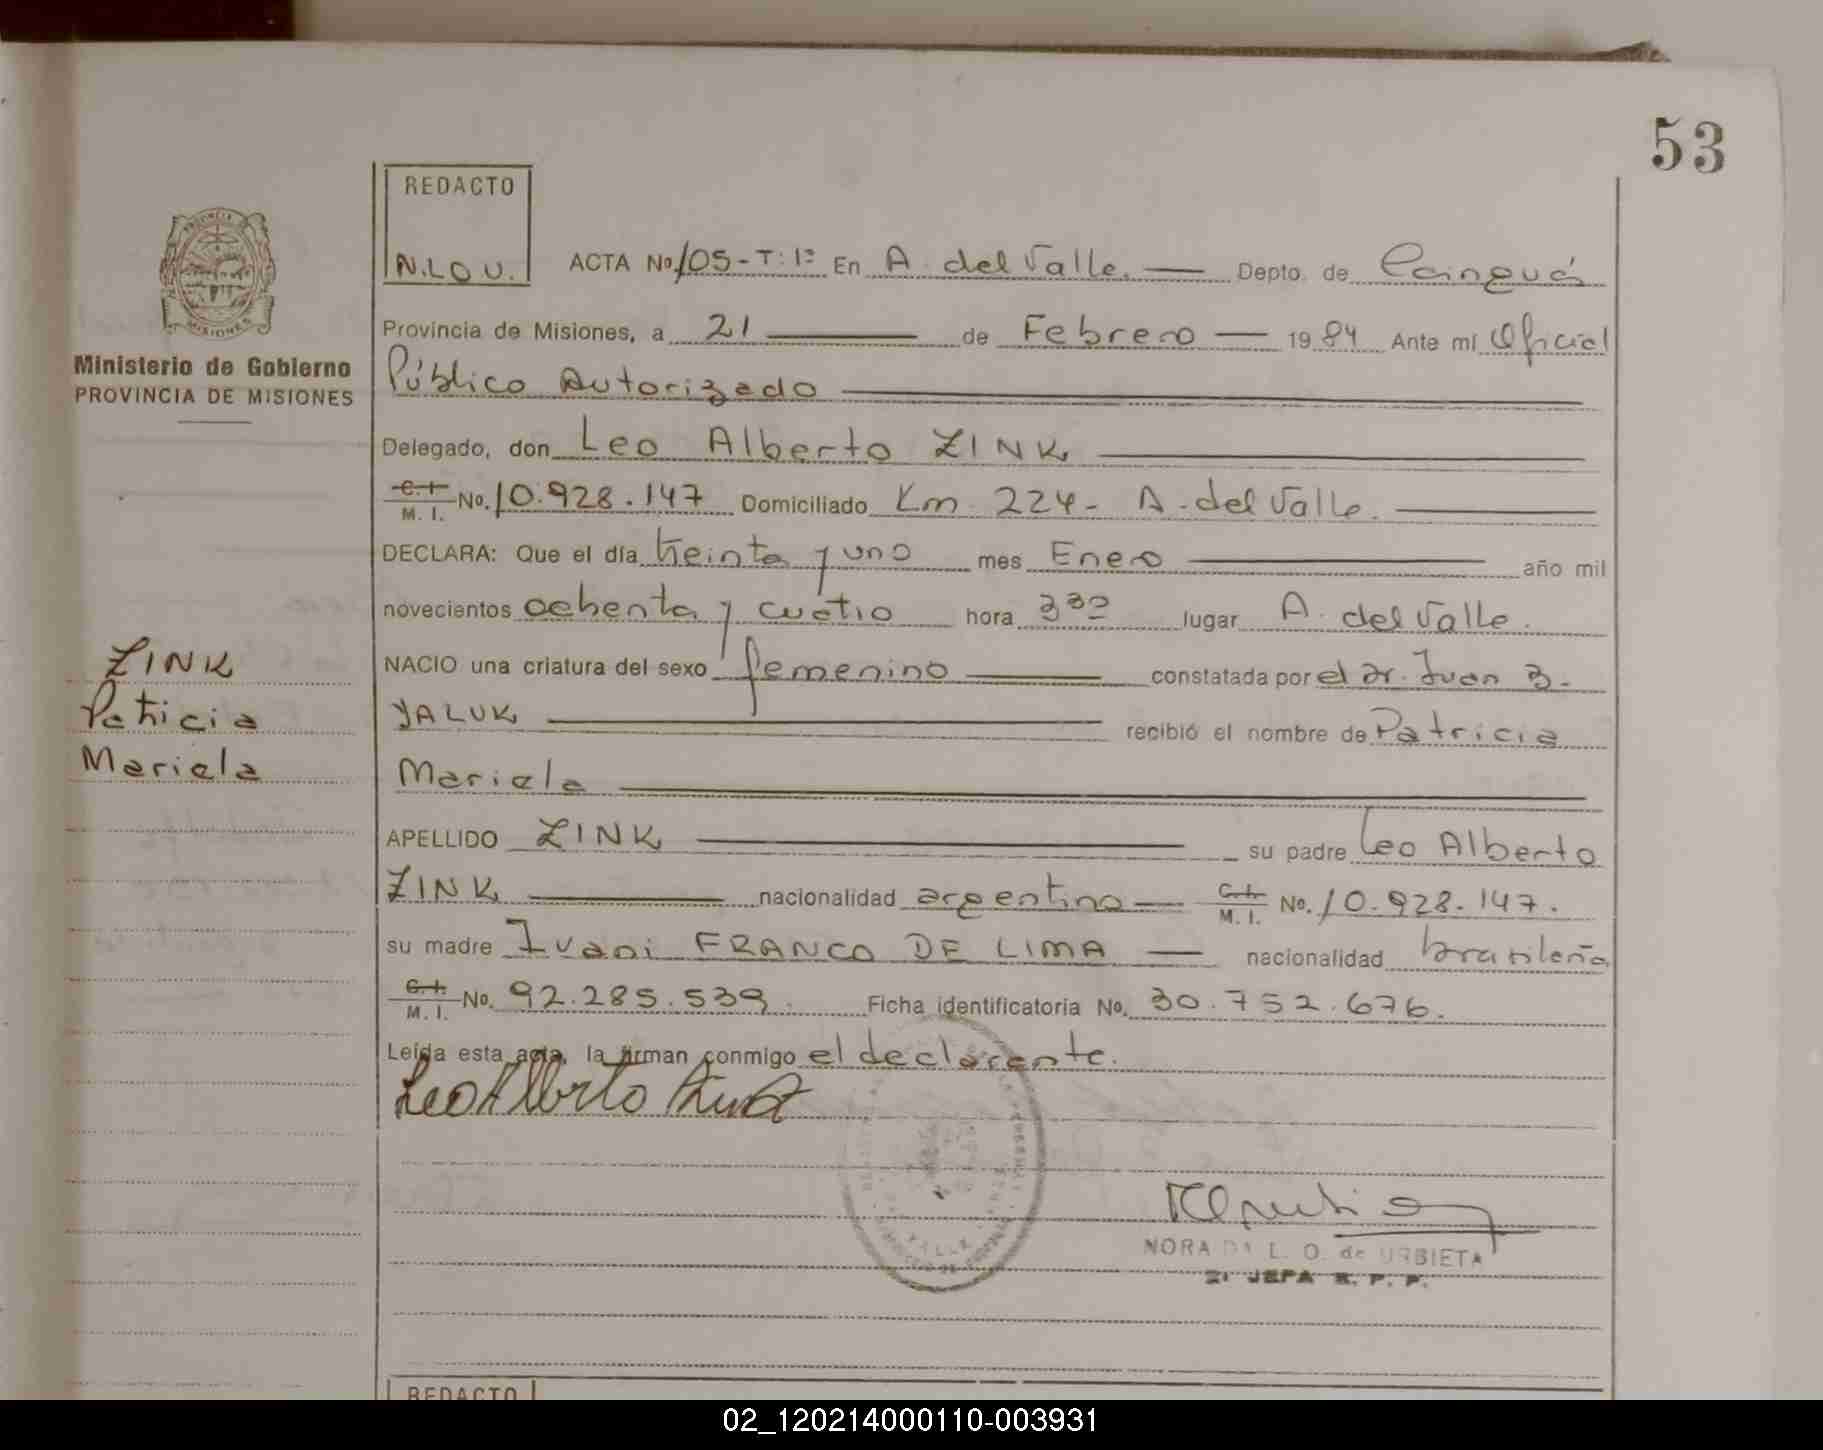 53
REDACTO
N.L.O U.
ACTA No. 105-T: 1º En A. del Valle. Depto. de Cainguás
Provincia de Misiones, a 21 de Febrero 1984 Ante mí Oficial
Ministerio de Gobierno
PROVINCIA DE MISIONES
Público Autorizado
Delegado, don Leo Alberto ZINK
C. I. M. I. No. 10.928.147 Domiciliado Km. 224- A. del Valle.
DECLARA: Que el día treinta y uno mes Enero año mil
novecientos ochenta y cuatro hora 3 30 lugar A. del Valle.
ZINK
Patricia
Mariela
NACIO una criatura del sexo femenino constatada por el Dr. Juan B.
YALUK recibió el nombre de Patricia
Mariela
APELLIDO ZINK su padre Leo Alberto
ZINK nacionalidad argentino C. I. M. I. No. 10.928.147.
su madre Ivani FRANCO DE LIMA nacionalidad brasileña
C. I. M. I. No. 92.285.539. Ficha identificatoria No. 30.752.676.
Leída esta acta, la firman conmigo el declarante.
Leo Alberto Zink
VALLE
NORA L. O. de URBIETA
JEFA R. P. P.
REDACTO
02_120214000110-003931